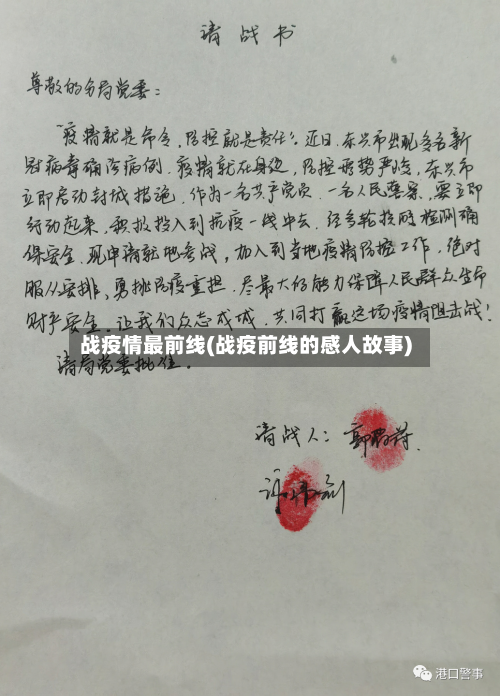 请战书
尊敬的分局党委：
“疫情就是命令，防控就是责任”。近日，东兴市出现多名新
冠病毒确诊病例，疫情就在身边，防控形势严峻，东兴市
立即启动封城措施。作为一名共产党员、一名人民警察，要立即
行动起来，积极投入到抗疫一线中去。经多轮核酸检测确
保安全，现申请就地参战，加入到当地疫情防控工作，绝对
服从安排，勇挑防疫重担，尽最大的能力保障人民群众生命
财产安全。让我们众志成城，共同打赢这场疫情阻击战！
战疫情最前线(战疫前线的感人故事)
请局党委批准。
请战人：
港口警事